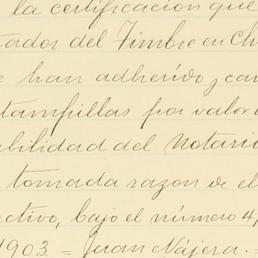 la certificación que
tador del Timbre en Ch
e han adherido y can
tampillas por valor d
abilidad del Notario
tomada razon de el
activo, bajo el número 4,
1903 = Juan Nájera.=